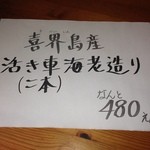 喜界島産
活き車海老造り
(二本)
なんと
480え